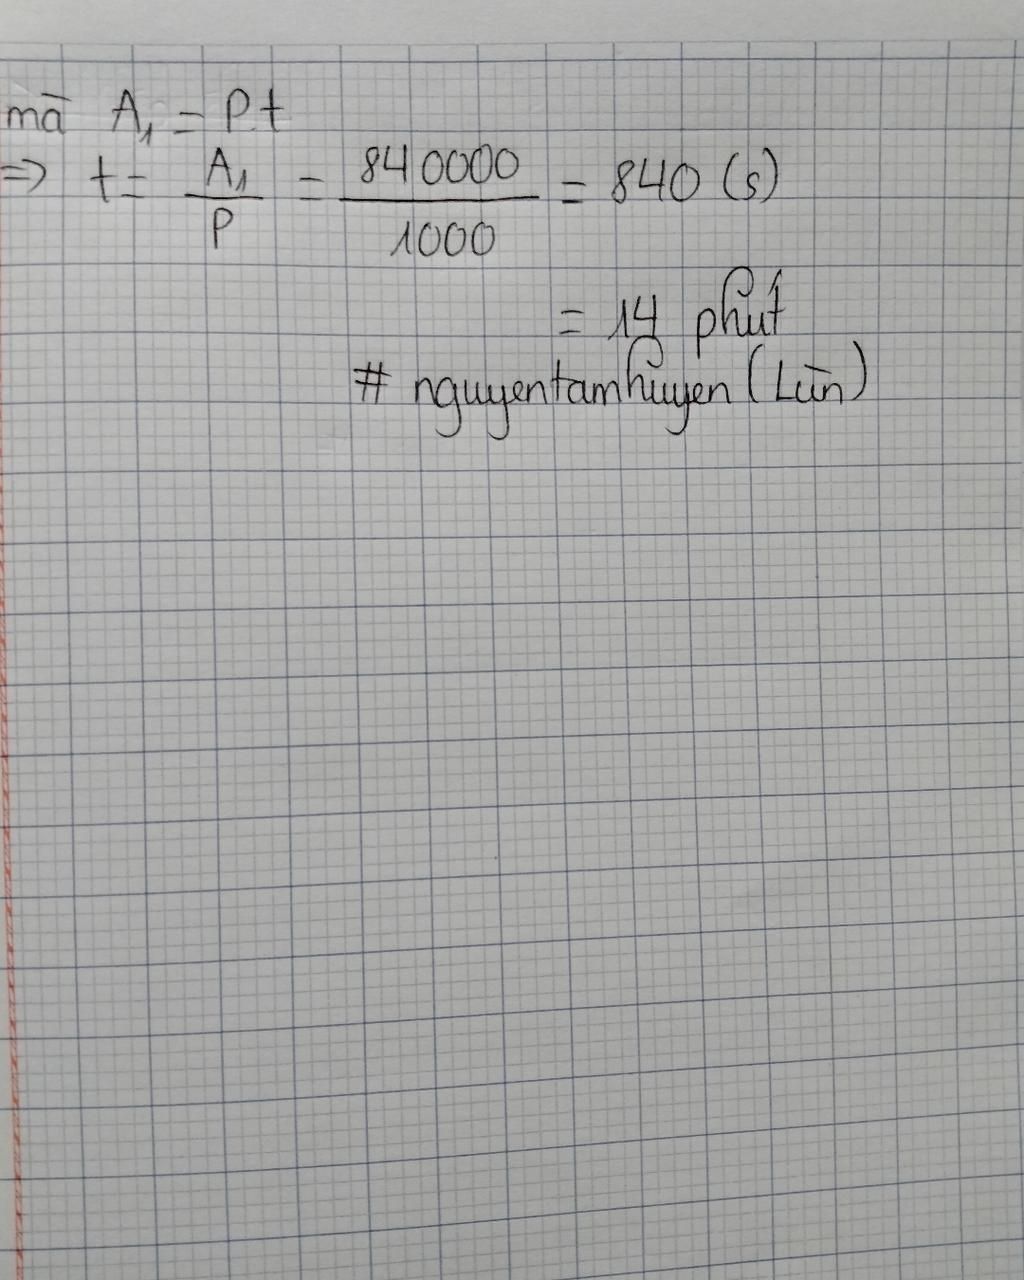 mà A₁ = P.t
=> t = A₁/P = 840000/1000 = 840 (s)
= 14 phút
# nguyentamhuyen (Lùn)